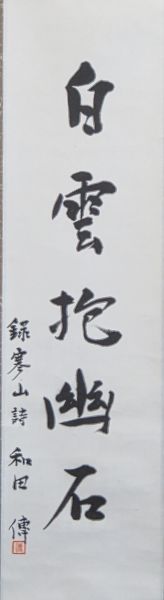 白雲抱幽石
録寒山詩 和田傳